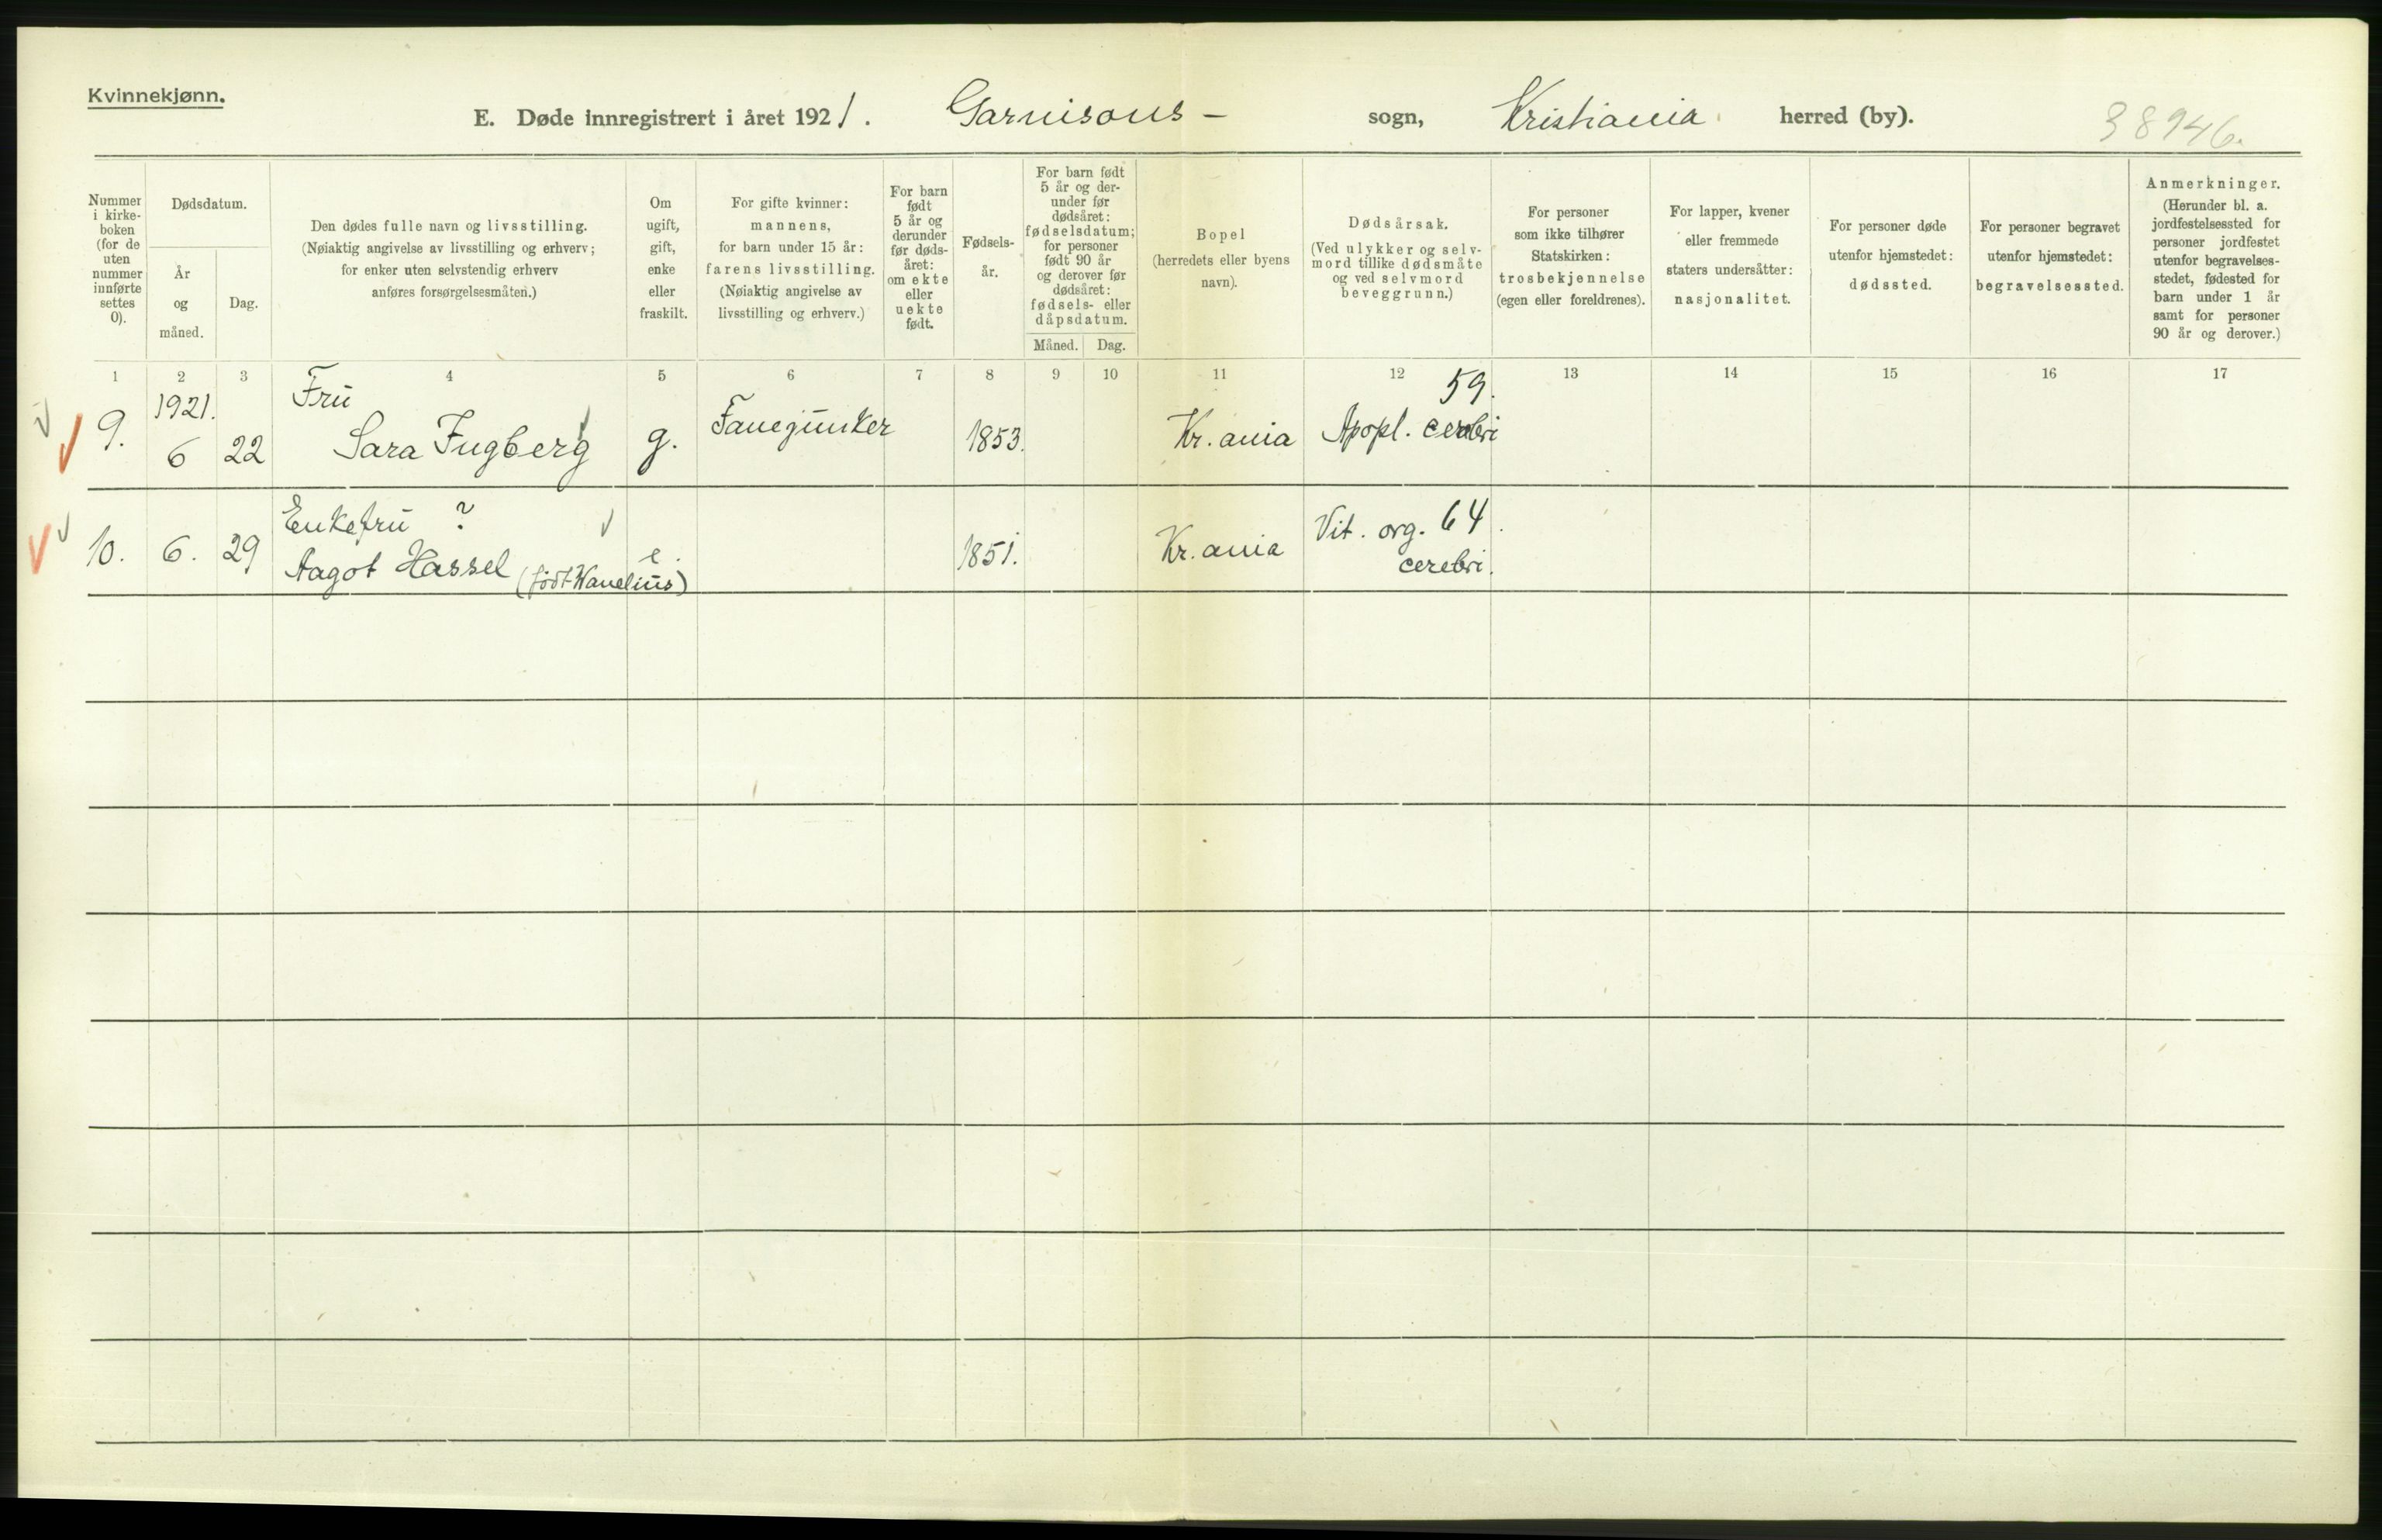 Kvinnekjønn.
E. Døde innregistrert i året 1921. Garnisons- sogn, Kristiania herred (by). 38946.
Nummer i kirke-
boken
(for de
uten
nummer
innførte
settes
0).
Dødsdatum.
År
og
måned.
Dag.
Den dødes fulle navn og livsstilling.
(Nøiaktig angivelse av livsstilling og erhverv;
for enker uten selvstendig erhverv
anføres forsørgelsesmåten.)
Om
ugift,
gift,
enke
eller
fraskilt.
For gifte kvinner:
mannens,
for barn under 15 år:
farens livsstilling.
(Nøiaktig angivelse av
livsstilling og erhverv.)
For barn
født
5 år og
derunder
før døds-
året:
om ekte
eller
uekte
født.
Fødsels-
år.
For barn født
5 år og der-
under før
dødsåret:
fødselsdatum;
for personer
født 90 år
og derover før
dødsåret:
fødsels- eller
dåpsdatum.
Måned. Dag.
Bopel
(herredets eller byens
navn).
Dødsårsak.
(Ved ulykker og selv-
mord tillike dødsmåte
og ved selvmord
beveggrunn.)
For personer
som ikke tilhører
Statskirken:
trosbekjennelse
(egen eller foreldrenes).
For lapper, kvener
eller fremmede
staters undersåtter:
nasjonalitet.
For personer døde
utenfor hjemstedet:
dødssted.
For personer begravet
utenfor hjemstedet:
begravelsessted.
Anmerkninger.
(Herunder bl. a.
jordfestelsessted for
personer jordfestet
utenfor begravelses-
stedet, fødested for
barn under 1 år
samt for personer
90 år og derover.)
1 2 3 4 5 6 7 8 9 10 11 12 13 14 15 16 17
1921. Fru 59.
9. 6 22 Sara Fugberg g. Fanejunker 1853. Kr.ania Apopl. cerebri
Enkefru ? Vit. org. 64.
10. 6. 29 Aagot Hassel (født Wanelius) e. 1851. Kr.ania cerebri.